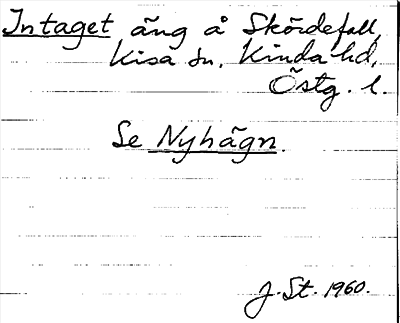 Intaget äng å Skördefall,
Kisa sn. Kinda hd,
Östg. l.
Se Nyhägn.
J. St. 1960.